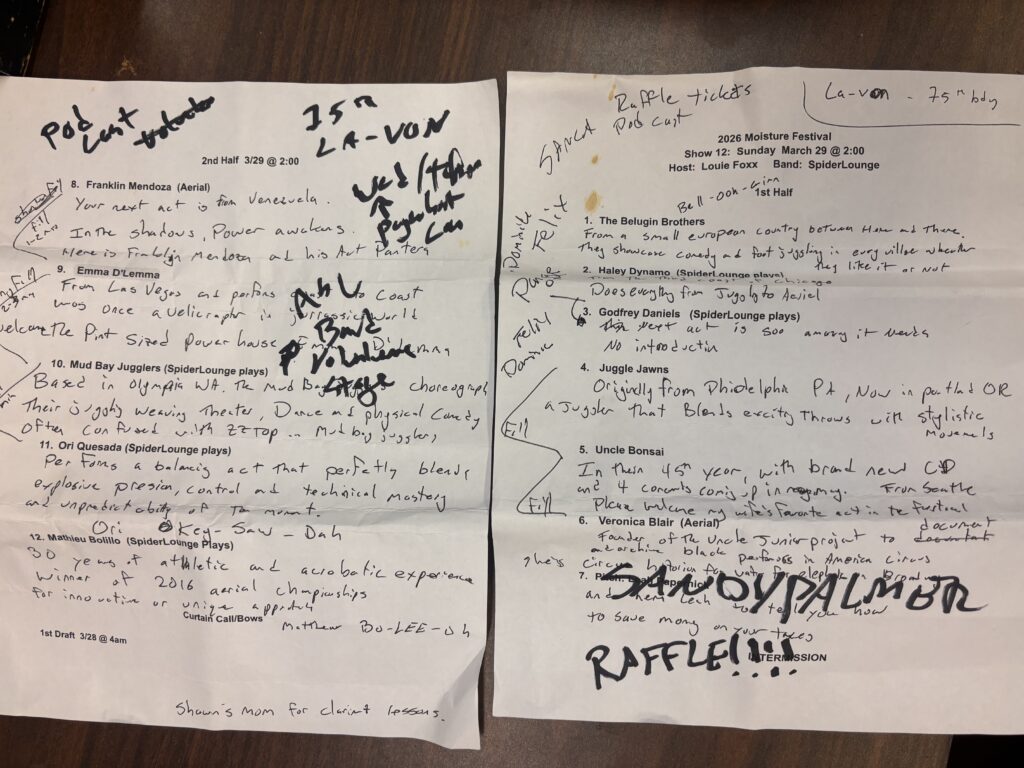 Pod
Cast
75th
LA-VON
2nd Half 3/29 @ 2:00
8. Franklin Mendoza (Aerial)
Your next act is from Venezuela.
In the shadows, Power awakens.
Here is Franklyn Mendoza and his Act Pantera
Fill
Fill
1-2 min
9. Emma D'Lemma
From Las Vegas and performs to Coast
was once a velicraptor in jurrassic world
welcome The Pint Sized Power house D'Lemma
Fill
10. Mud Bay Jugglers (SpiderLounge plays)
Based in Olympia WA. The Mud Bay choreograph
Their juggling weaving Theater, Dance and physical Comedy
Often confused with ZZTop Mud bay jugglers
Band
Volunteer
Stage
11. Ori Quesada (SpiderLounge plays)
Performs a balancing act that perfectly blends
explosive presion, control and technical mastery
and unpredictability of The moment.
Ori Key-Saw-Dah
12. Mathieu Bolillo (SpiderLounge Plays)
30 years of athletic and acrobatic experience
winner of 2016 aerial championships
for innovative or unique
Curtain Call/Bows
Matthew BO-LEE-Oh
1st Draft 3/28 @ 4am
Shawn's mom for clarinet lessons.
Raffle tickets
Podcast
SANCA
La-von - 75th bday
2026 Moisture Festival
Show 12: Sunday March 29 @ 2:00
Host: Louie Foxx Band: SpiderLounge
1st Half
Bell-ooh-Ginn
1. The Belugin Brothers
From a small european country between Here and There.
They showcase comedy and foot juggling in every village wheather
they like it or not
Felix
2. Haley Dynamo (SpiderLounge plays)
Does everything from Juggling to Aerial
3. Godfrey Daniels (SpiderLounge plays)
next act is soo it needs
No introduction
Felix
4. Juggle Jawns
Originally from Phidelphia PA, Now in portland OR
a Juggler that Blends exciting Throws with stylistic
Movements
Fill
5. Uncle Bonsai
In their 45th year, with brand new CD
and 4 concerts coming up in From Seattle
Please welcome my wife's favorite act in the festival
Fill
6. Veronica Blair (Aerial)
document
Founder of the Uncle Junior project to
and archive black performers in America circus
she's
7.
SANDY PALMER
to save money on your taxes
RAFFLE!!!!
INTERMISSION